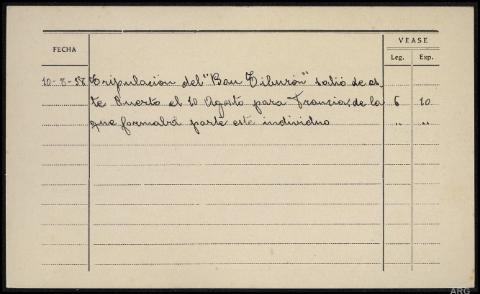 VEASE
FECHA
Leg. Exp.
10-8-37 Tripulación del "Bou Tiburón" salió de es-
te Puerto el 10 Agosto para Francia, de la 6 20
que formaba parte este individuo " "
ARG